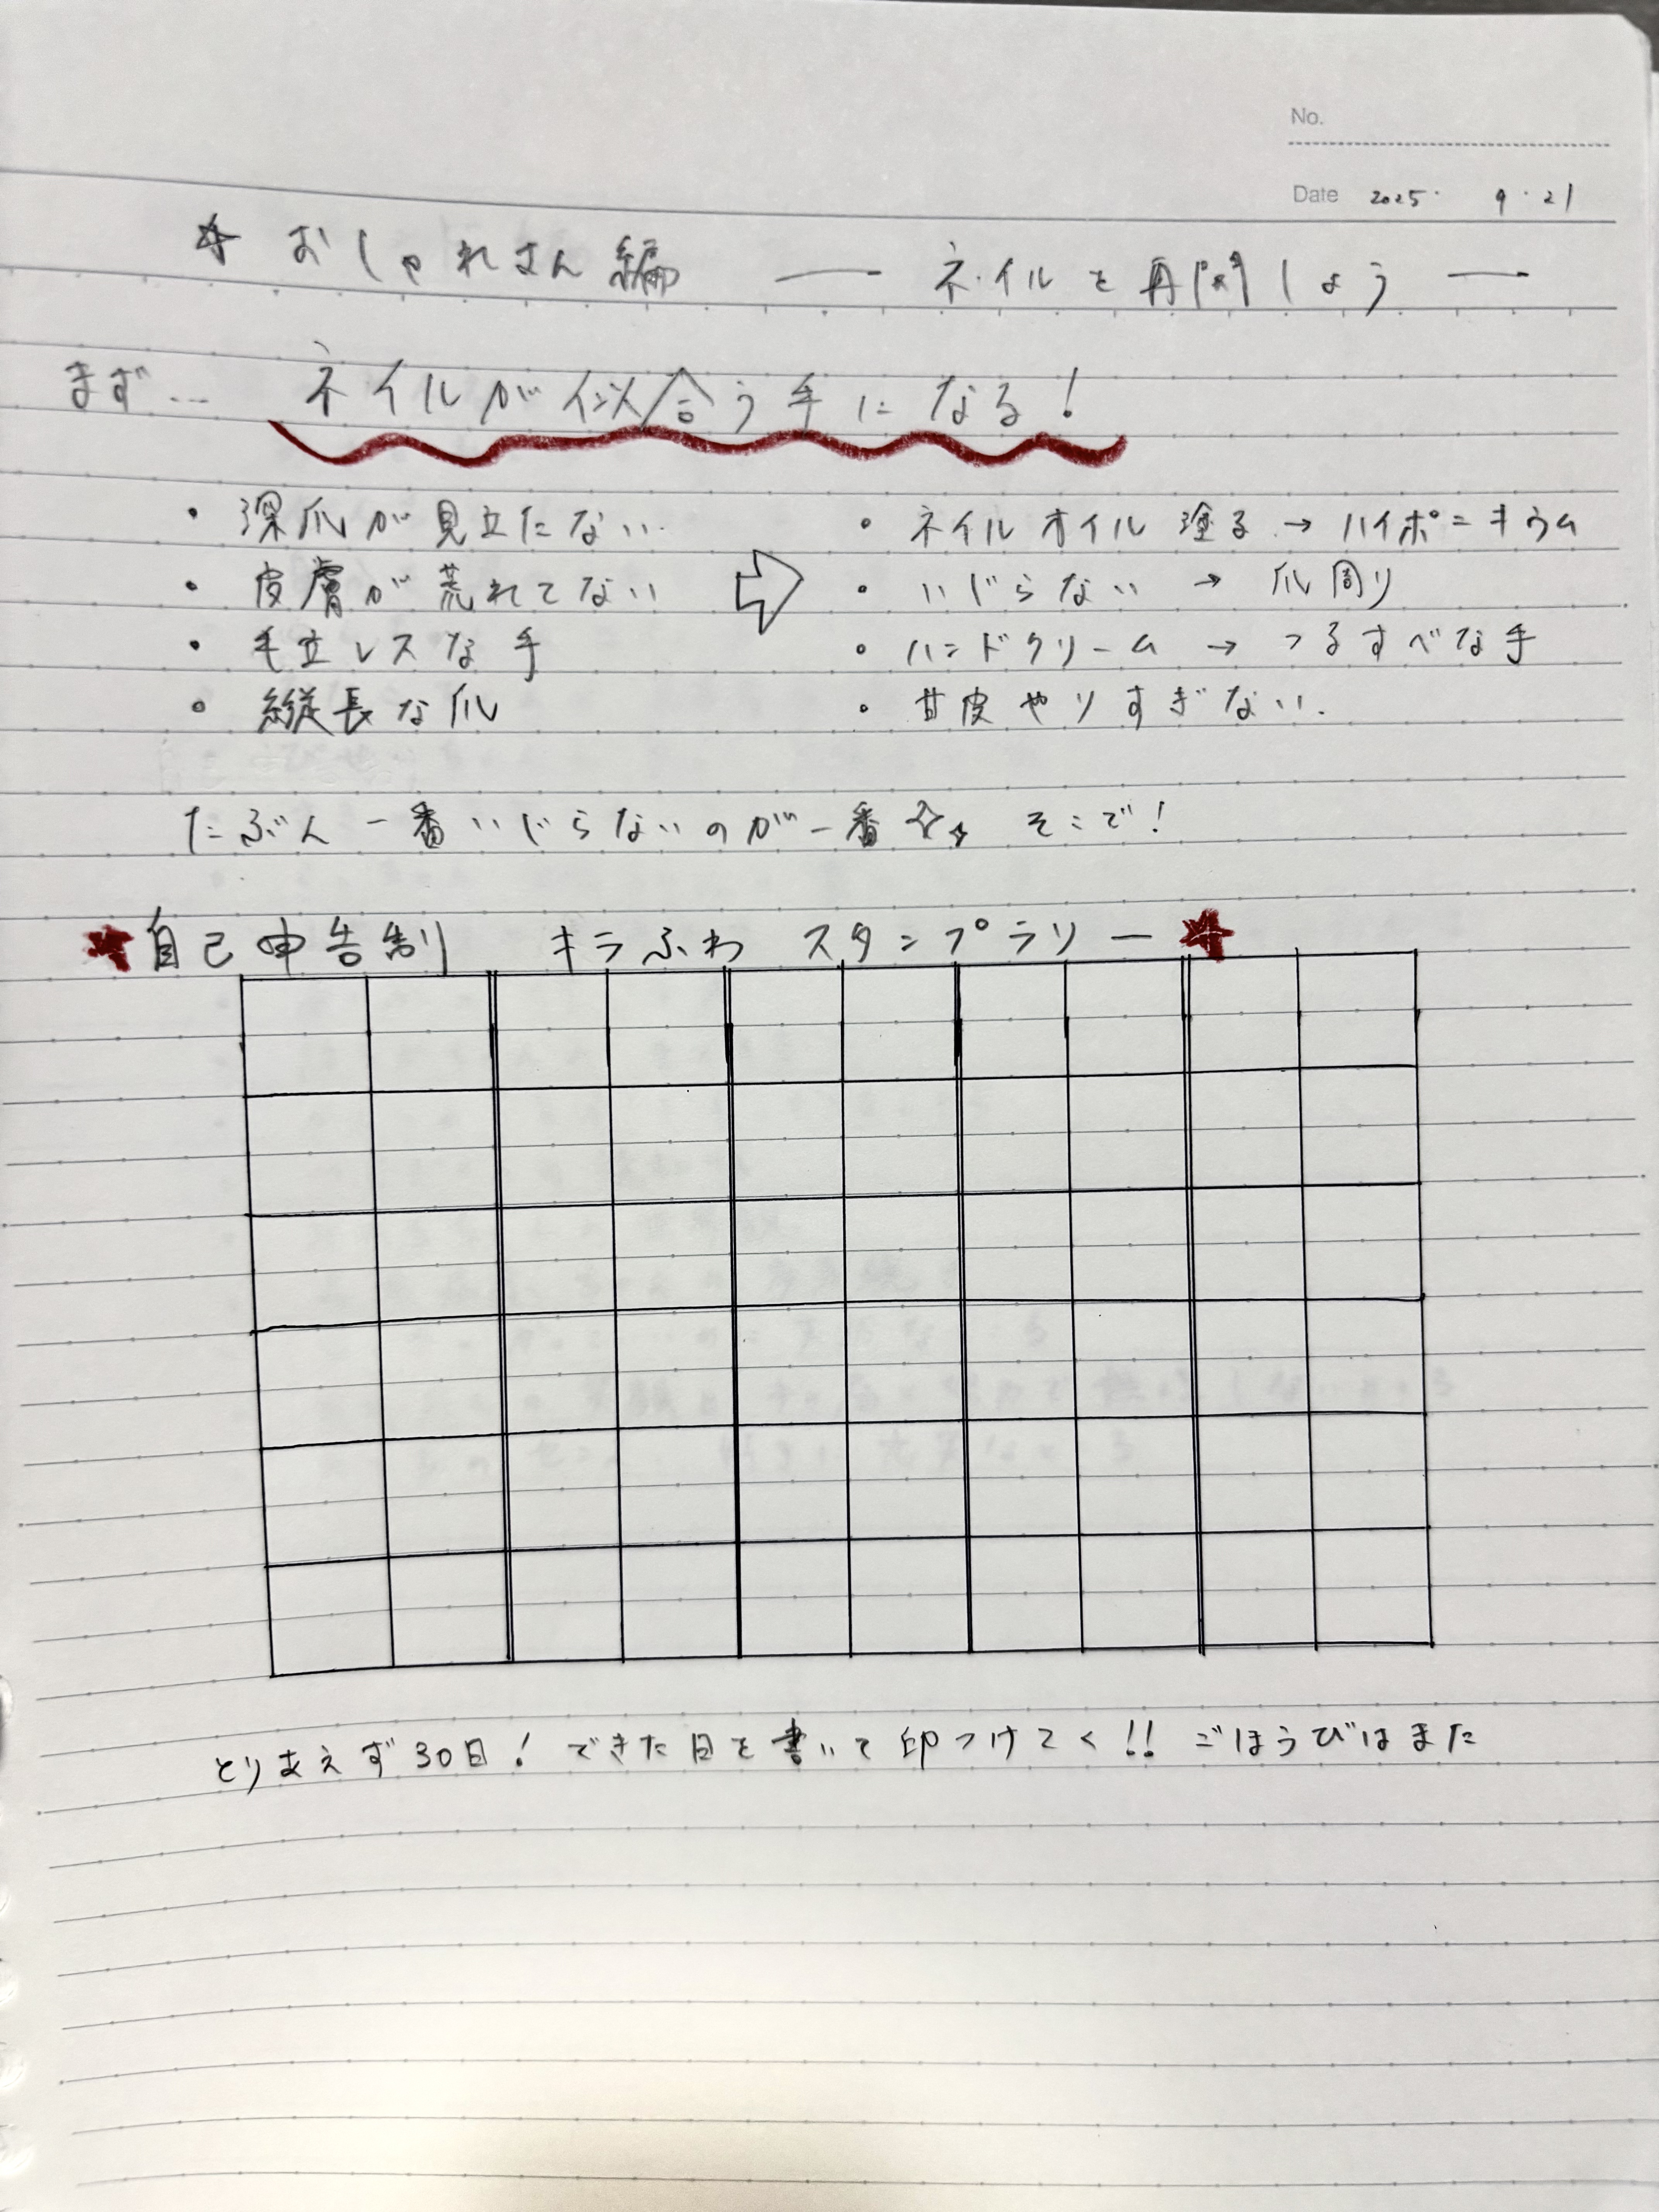 No.
Date 2025. 9.21
☆ おしゃれさん編 — ネイルを再開しよう —
まず… ネイルが似合う手になる!
・深爪が見立たない
・皮膚が荒れてない
・毛立レスな手
・縦長な爪
・ネイルオイル塗る → ハイポニキウム
・いじらない → 爪周り
・ハンドクリーム → つるすべな手
・甘皮やりすぎない.
たぶん一番いじらないのが一番☆☆ そこで!
★自己申告制 キラふわ スタンプラリー★
とりあえず30日! できた日を書いて印つけてく!! ごほうびはまた